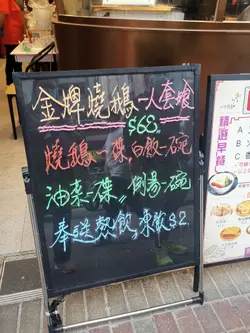 金牌燒鵝一人套餐
$68.
燒鵝一碟,白飯一碗
油菜一碟,例湯一碗
奉送熱飲,凍飲$2.
精選早餐
B
C